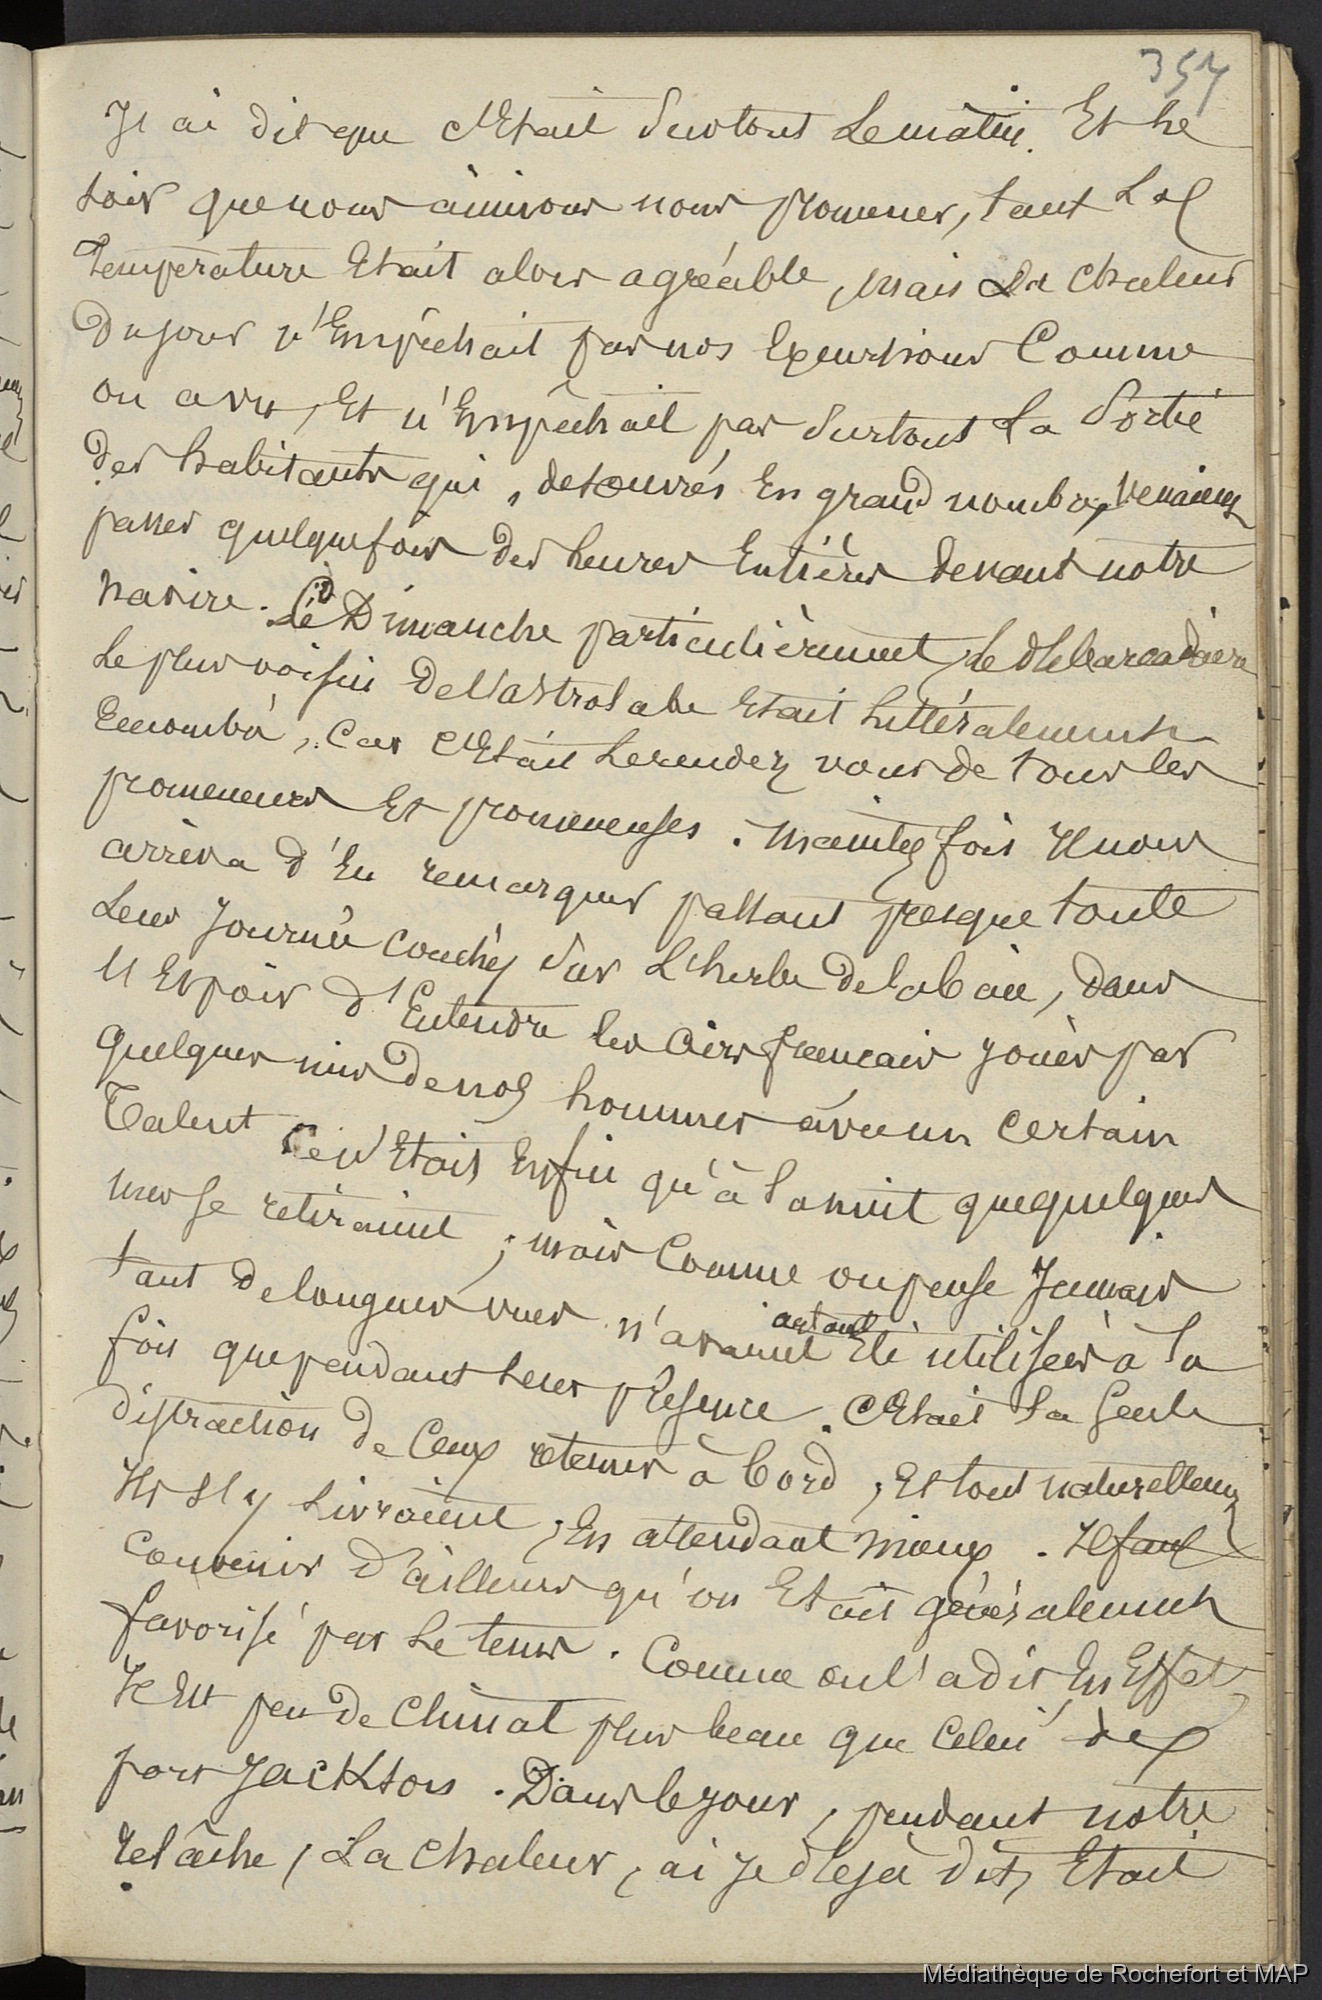 357
J'ai dit que c'Etait surtout Le matin Et Le
soir que nous aimions nous promener, tant La
Température Etait alors agréable, mais La chaleur
Du jour n'Empêchait pas nos Excursions Comme
on a vu, Et n'Empêchait pas surtout La Sortie
des habitants qui, désoeuvrés En grand nombre, venaient
passer quelquefois des heures Entières devant notre
navire. Le Dimanche particulièrement, Le débarcadère
Le plus voisin de L'astrolabe Etait Littéralement
Encombré, Car c'Etait Le rendez vous de tous les
promeneurs Et promeneuses. Maintes fois Il nous
arriva d'En remarquer passant presque toute
Leur Journée couchés sur L'herbe de la baie, dans
L'Espoir d'Entendre les airs francais joués par
quelques uns de nos hommes avec un certain
Talent Ce n'Etait Enfin qu'à La nuit que quelques
unes se retiraient ; mais Comme on pense Jamais
tant de longues vues n'avaient autant Eté utilisées à la
fois que pendant Leur présence. C'Etait La Seule
distraction de Ceux retenus à bord, Et tout naturellement
Ils s'y Livraient, En attendant mieux. Il faut
Convenir d'ailleurs qu'on Etait généralement
favorisé par Le tems. Comme on l'a dit En Effet,
Il Est peu de Climat plus beau que Celui de
port Jackson. Dans le jour, pendant notre
relâche, La chaleur, ai je déjà dit, Etait
Médiathèque de Rochefort et MAP